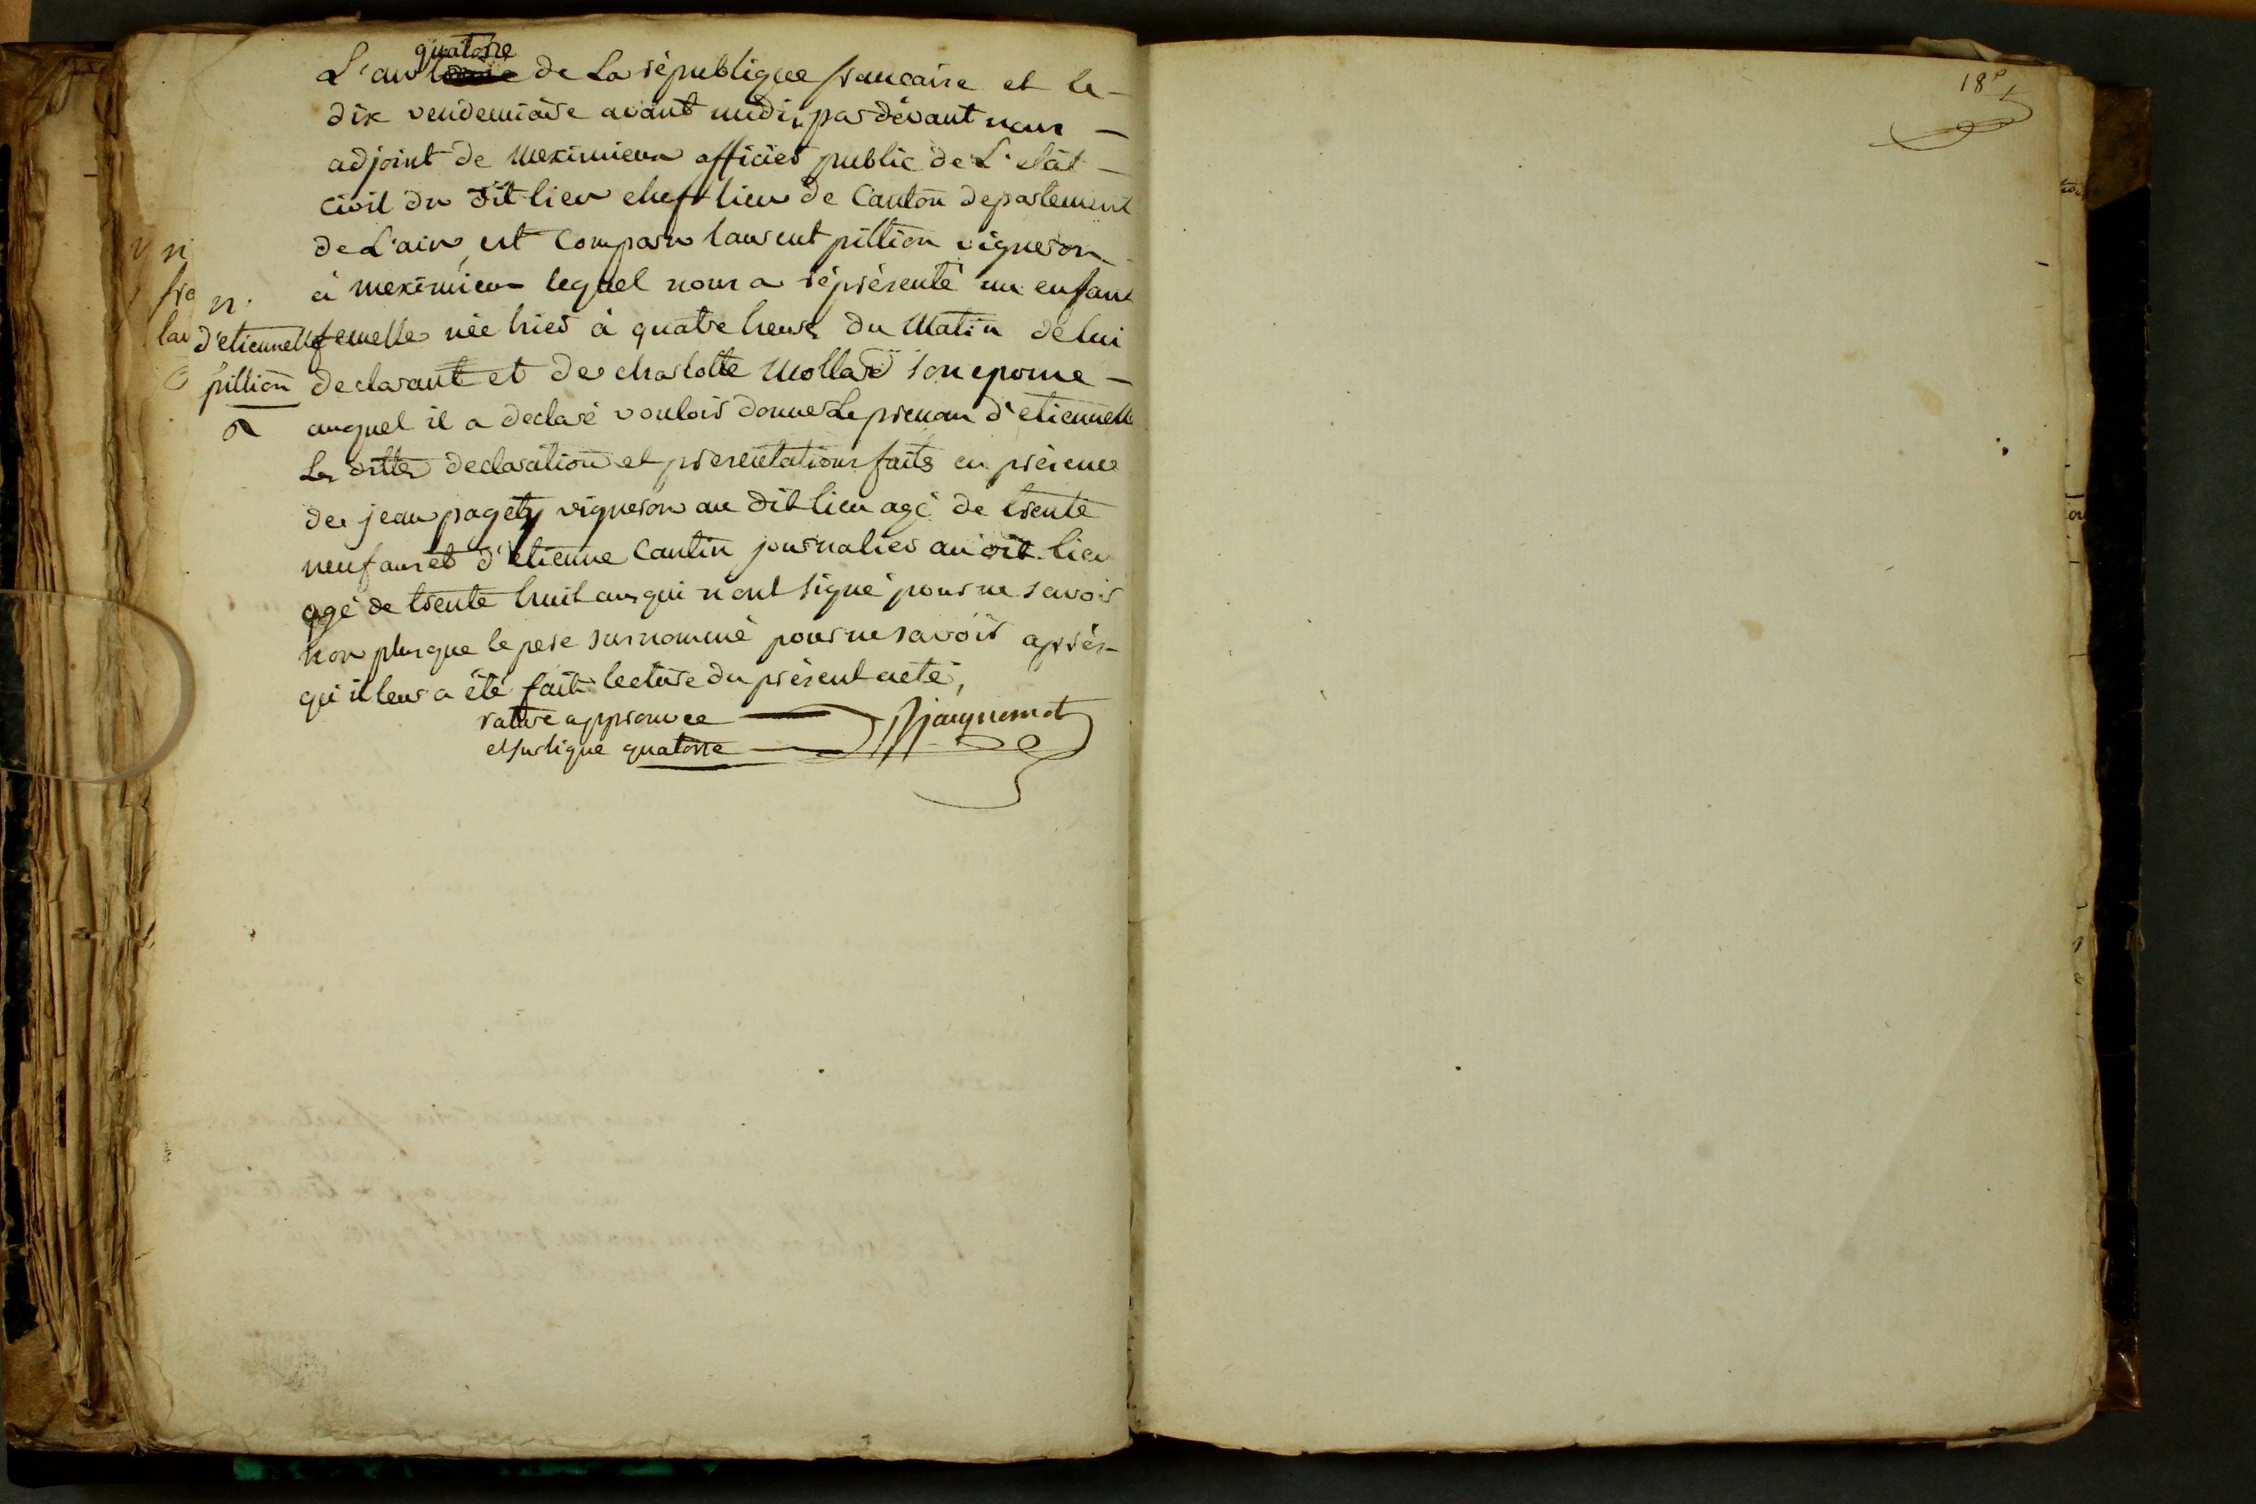 quatorze
L'an de la république francaise et le
dix vendemiaire avant midi, pardevant nous
adjoint de meximieux officier public de L'etat
civil du dit lieu chef lieu de Canton departement
de L'ain, est comparu laurent pittion vigneron
à meximieux lequel nous a réprésenté un enfant
n.
d'etiennette femelle née hier à quatre heures du matin de lui
pittion declarant et de charlotte mollard son epouse
auquel il a declaré vouloir donner le prenom d'etiennette
Les dittes declaration et presentations faits en présence
de jean paget vigneron au dit lieu agé de trente
neuf ans et d'etienne Cantin journalier au dit lieu
agé de trente huit ans qui n'ont signé pour ne savoir
non plus que le pere surnommé pour ne savoir après
qu'il leur a été fait lecture du présent acte,
rature approuvee
et surligne quatorze
Jacquemet
ni
fra
lau
18